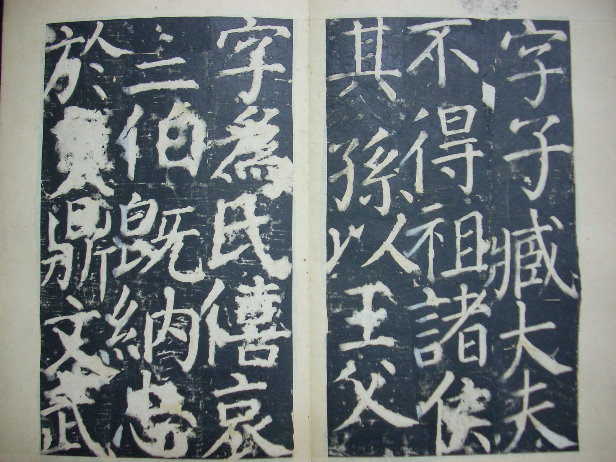 字子臧大夫
不得祖諸侯
其孫以王父
字為氏僖哀
二伯既納忠
於鼎文武